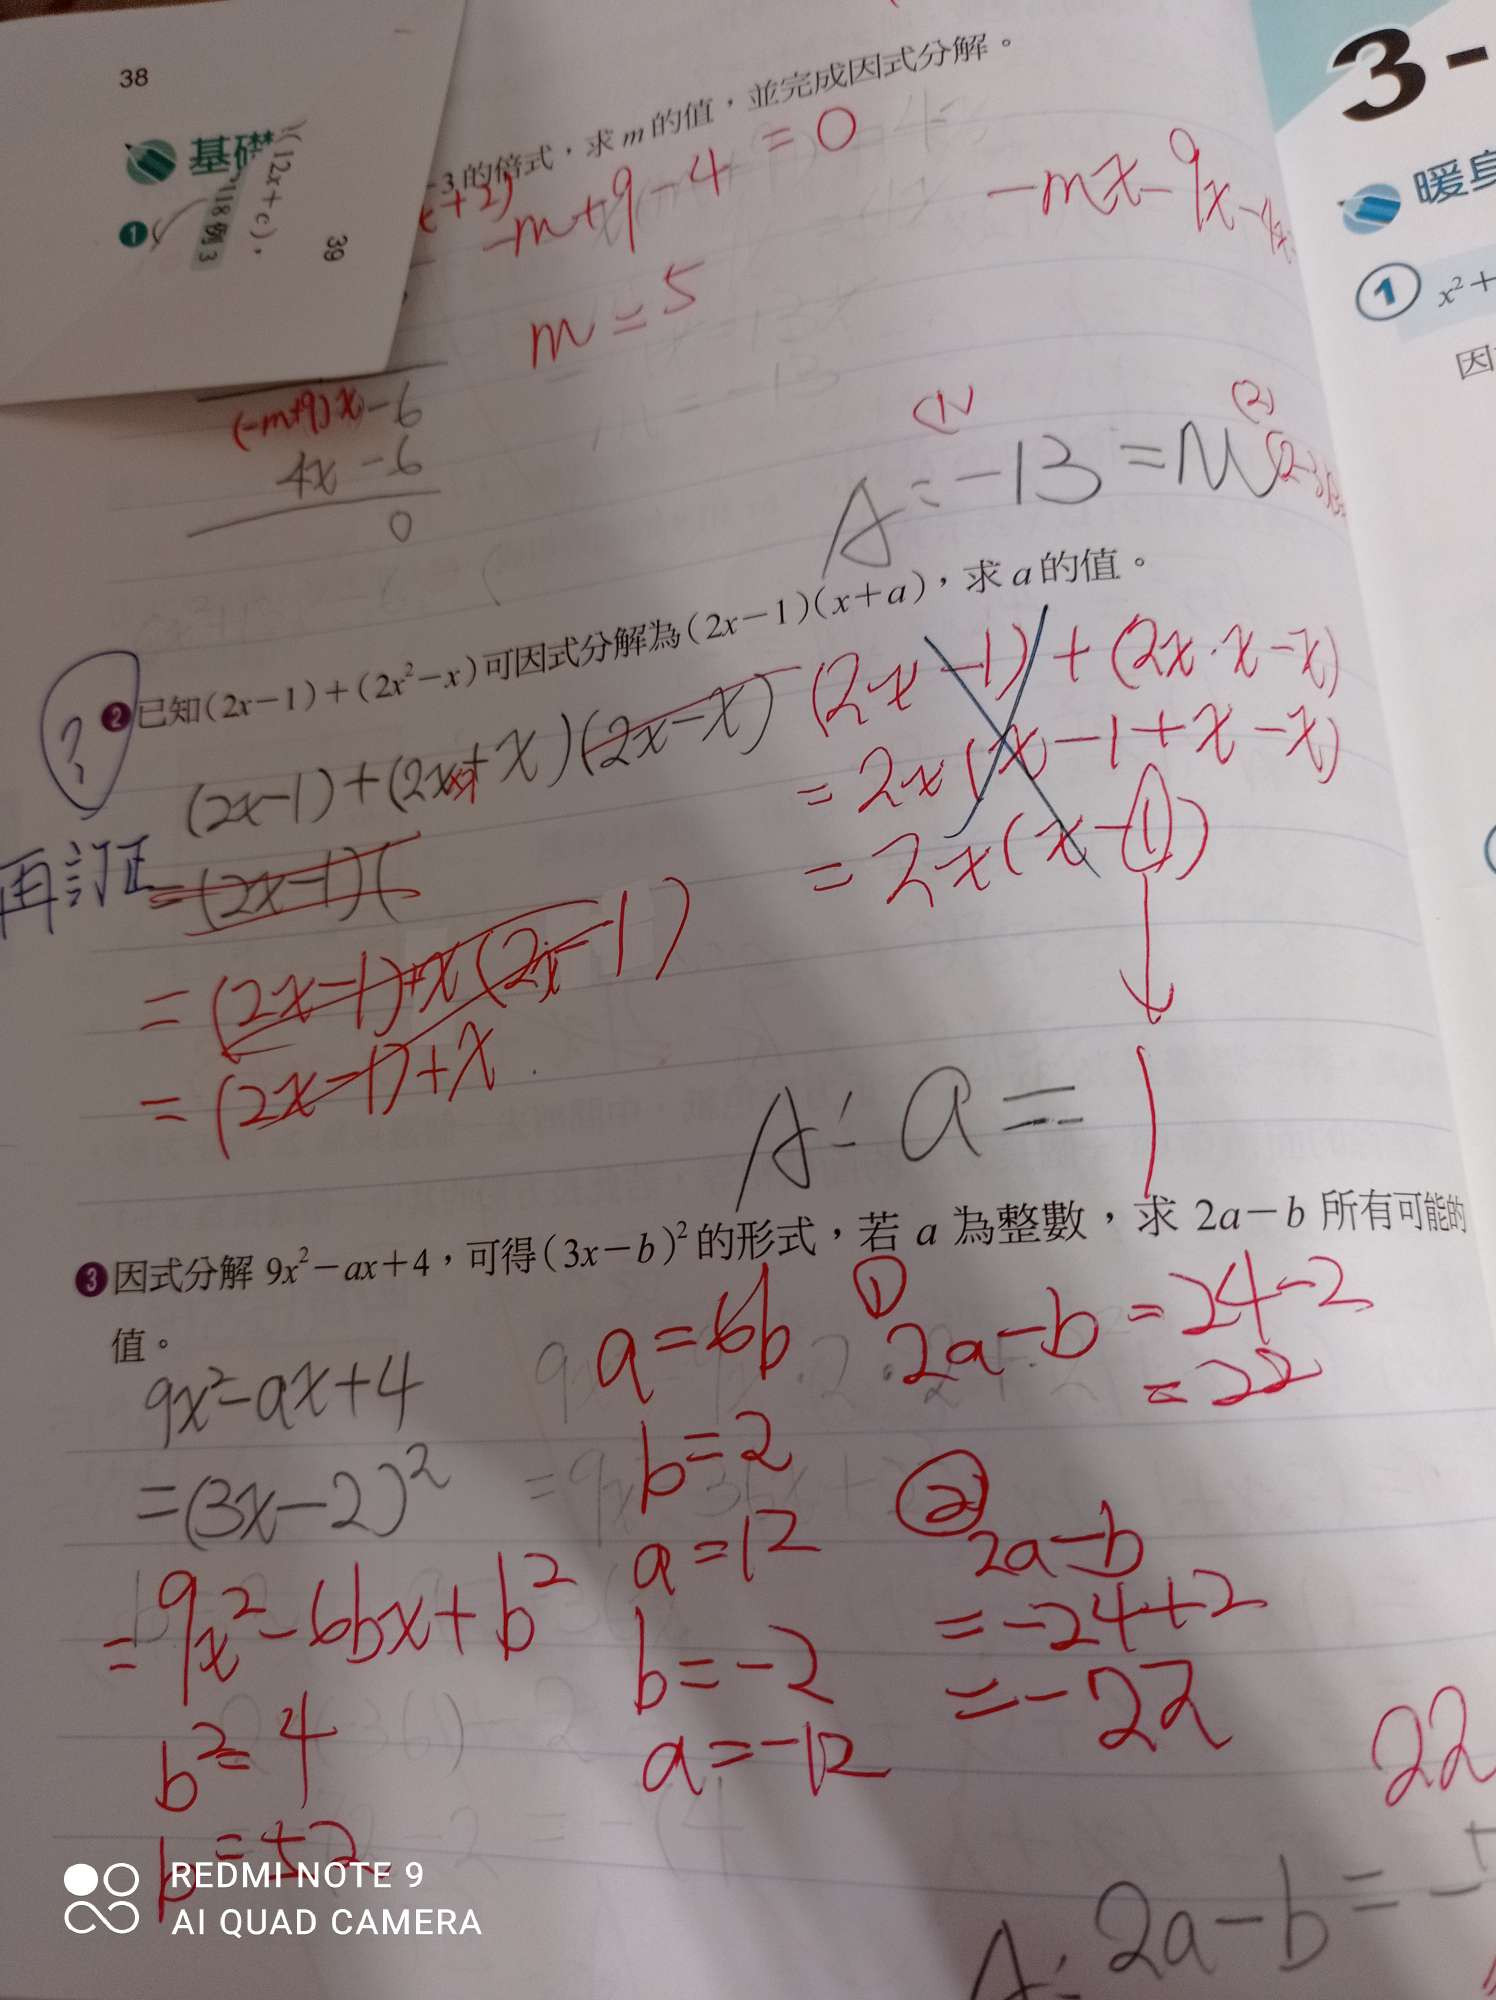 38
基礎
1
(12x+c),
118 例 3
39
-3的倍式，求 m 的值，並完成因式分解。
-m+9-4=0
-mx-9x-4x
m=5
(-m+9)x-6
4x-6
0
(1)
(2)
A:-13=m
❷ 已知(2x-1)+(2x²-x)可因式分解為(2x-1)(x+a)，求 a 的值。
?
再訂正
(2x-1)+(2x+x)(2x-x)
=(2x-1)(
=(2x-1)+x(2x-1)
=(2x-1)+x
(2x-1)+(2x·x-x)
=2x(x-1+x-x)
=2x(x-1)
A: a=1
❸ 因式分解 9x²-ax+4，可得(3x-b)²的形式，若 a 為整數，求 2a-b 所有可能的
值。
9x²-ax+4
=(3x-2)²
=9x²-6bx+b²
b²=4
b=±2
a=6b
b=2
a=12
b=-2
a=-12
① 2a-b=24-2
=22
② 2a-b
=-24+2
=-22
22
A: 2a-b=-
3-
暖身
1 x²+
REDMI NOTE 9
AI QUAD CAMERA